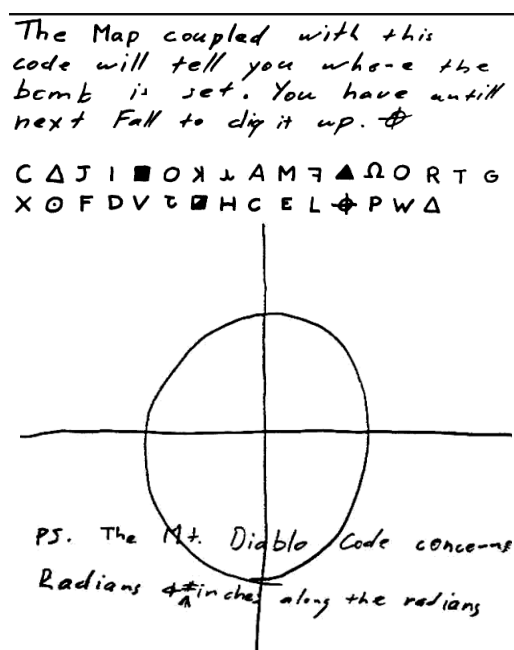 The Map coupled with this
code will tell you where the
bomb is set. You have untill
next Fall to dig it up. ⌖
C Δ J I ■ O ꓘ ⅄ A M ꟻ ▲ Ω O R T G
X ⊙ F D V ح ◪ H C E L ⌖ P W Δ
PS. The Mt. Diablo Code concerns
Radians & # inches along the radians